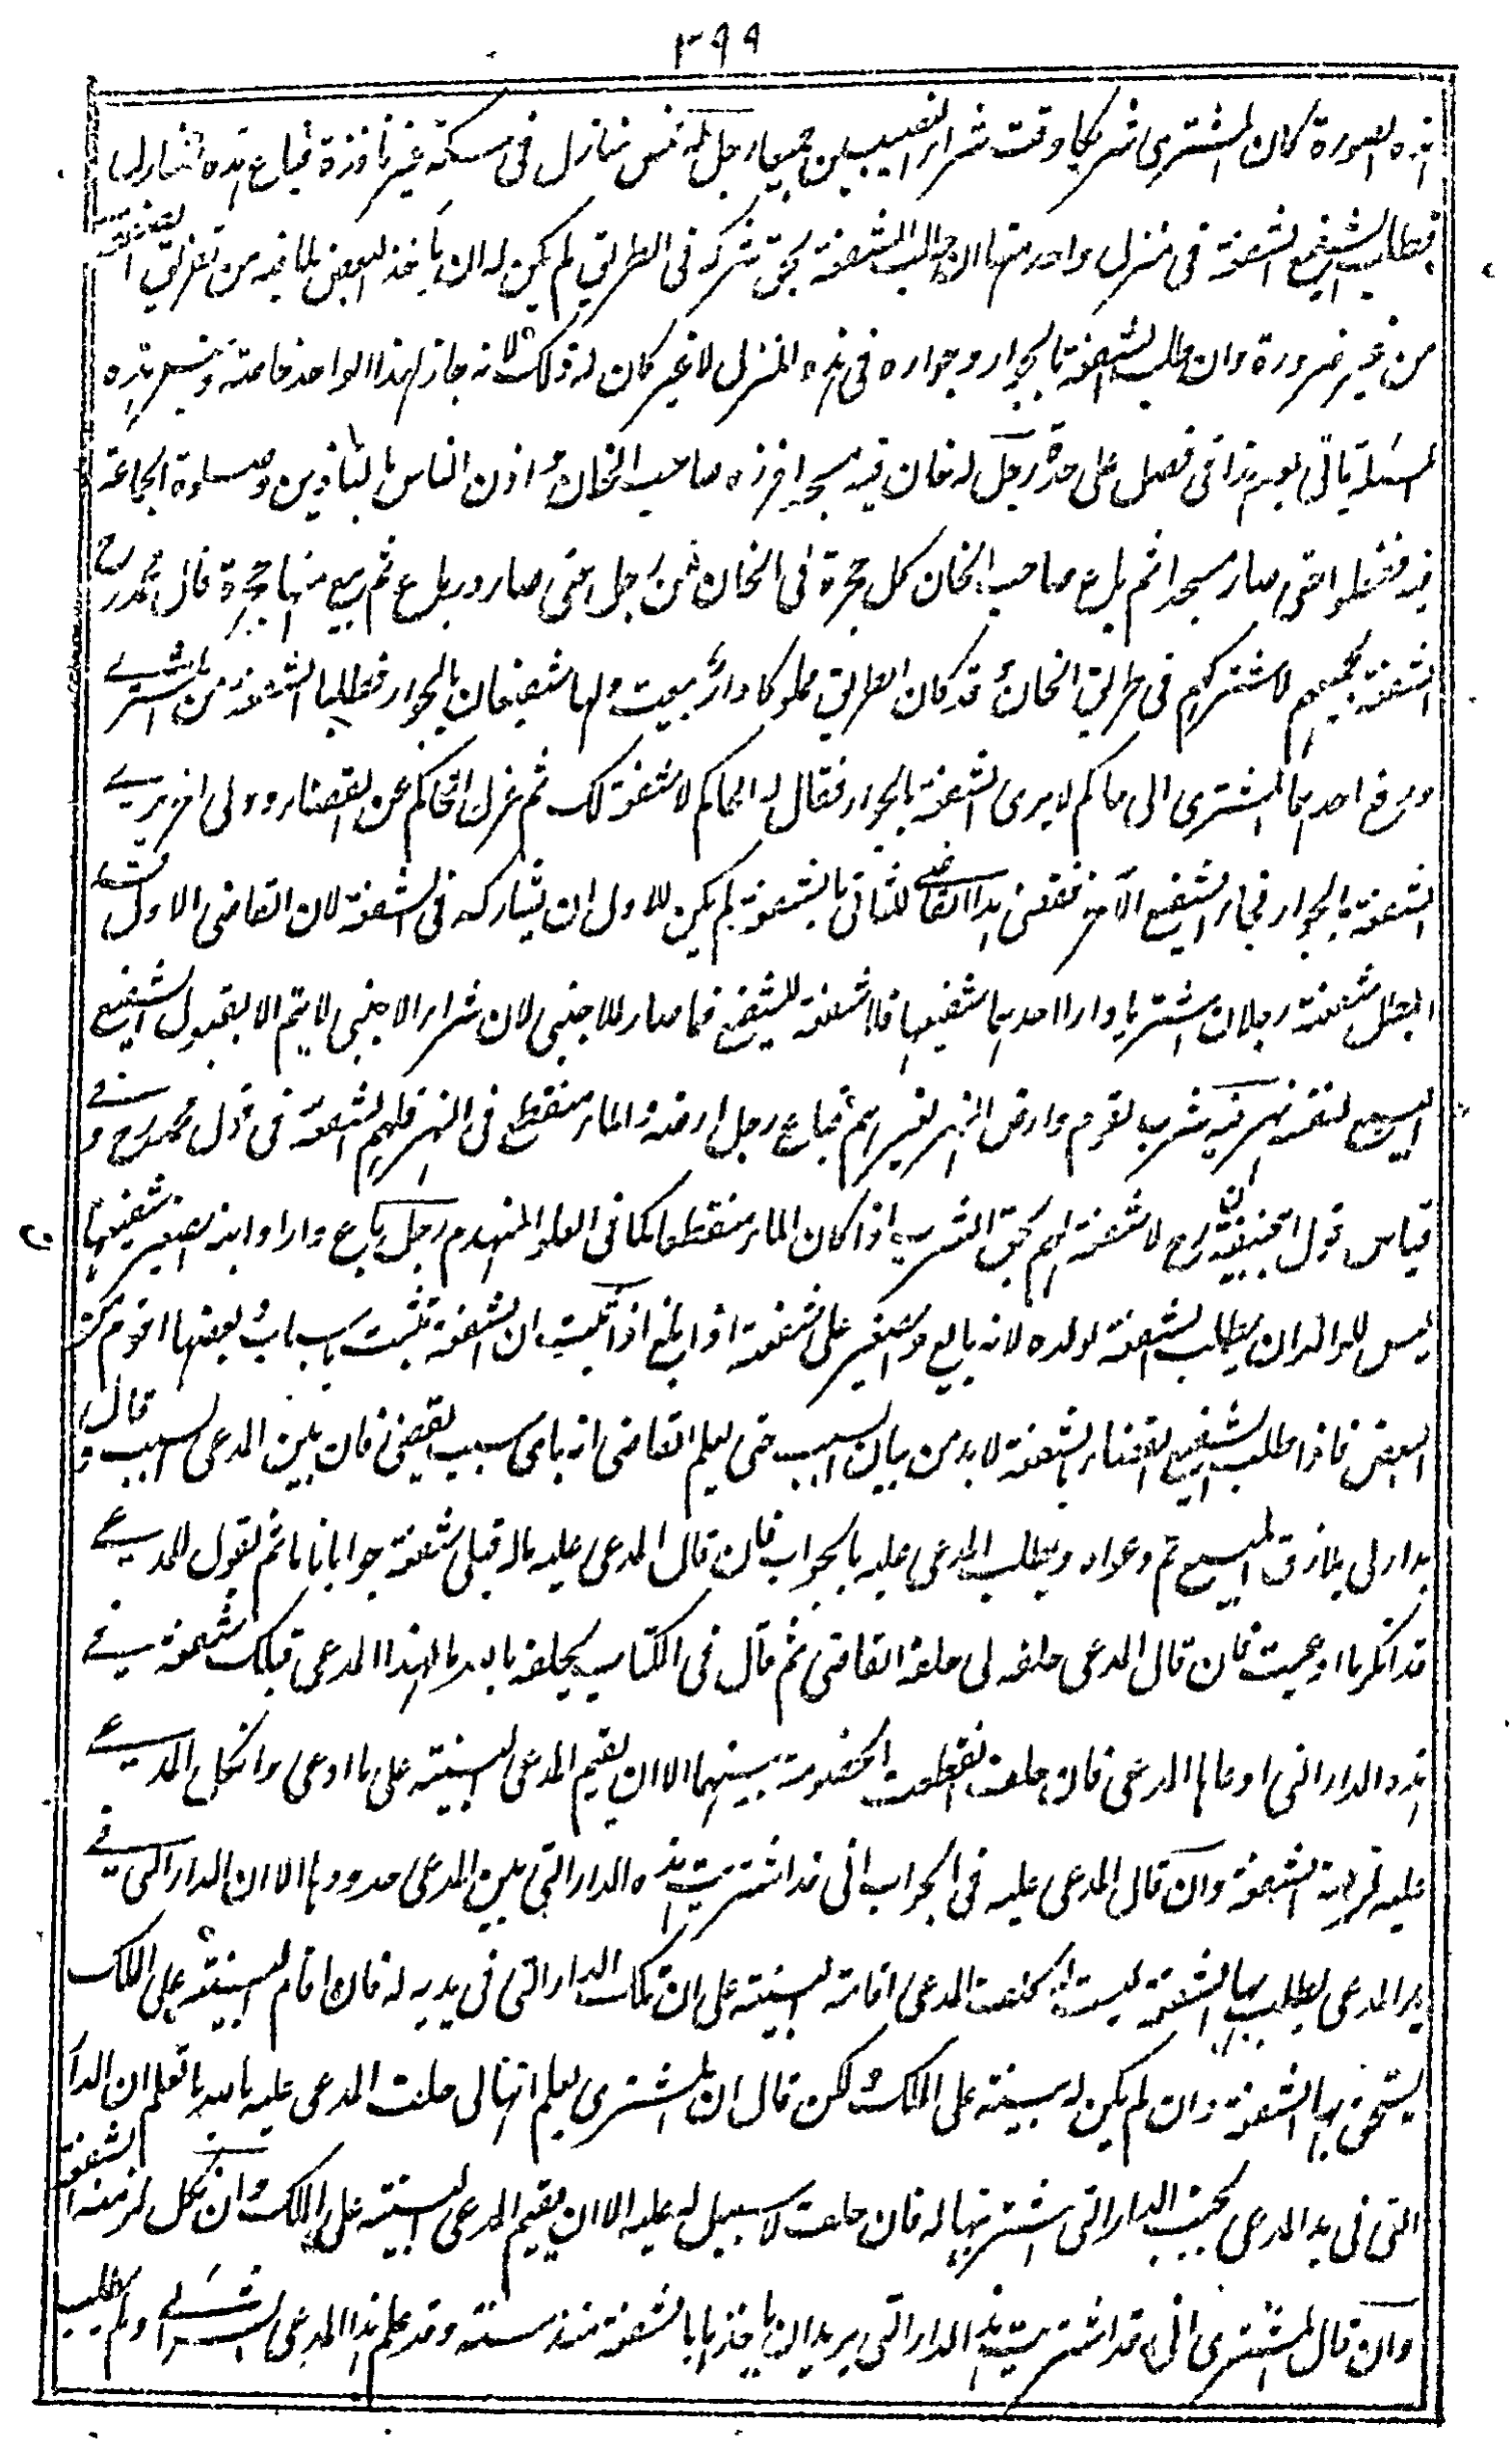 ٣٩٩
هذه الصورة كان المشتري شريكا وقت شراء النصيبين جميعا رجل له خمس منازل في سكة غير نافذة فباع هذه المنازل
فطلب الشفيع الشفعة في منزل واحد منها ان طالب الشفعة بحق شركة في الطريق لم يكن له ان ياخذ البعض لما فيه من تفريق الصفقة
من غير ضرورة وان طلب الشفعة بالجوار وجواره في هذه المنزل لا غير كان له ذلك لانه جاز لهذا الواحد خاصة وجنس هذه
المسئلة ياتي بعد هذا في فصل على حدة رجل له خان فيه مسجد افرزه صاحب الخان و اذن الناس بالتاذين وصلوة الجماعة
فيه ففعلوا حتى صار مسجدا ثم باع صاحب الخان كل حجرة في الخان من رجل حتى صار دربا ثم بيع منها حجرة قال محمد رح
الشفعة لجميعهم لاشتراكهم في طريق الخان و قد كان الطريق مملوكا دار بيعت ولها شفيعان بالجوار فطلبا الشفعة من المشتري
ورفع احدهما المشتري الى حاكم لا يرى الشفعة بالجوار فقال له الحاكم لا شفعة لك ثم عزل الحاكم عن القضاء وولى اخر يرى
الشفعة بالجوار فجاء الشفيع الآخر فقضى هذا القاضي للثاني بالشفعة لم يكن للاول ان يشاركه في الشفعة لان القاضي الاول
ابطل شفعته رجلان اشتريا دارا احدهما شفيعها فلا شفعة للشفيع فيما صار للاجنبي لان شراء الاجنبي لا يتم الا بقبول الشفيع
البيع لنفسه نهر فيه شرب لقوم وارض النهر لغيرهم فباع رجل ارضه والماء منقطع في النهر فلهم الشفعة في قول محمد رح و في
قياس قول ابي حنيفة رح لا شفعة لهم بحق الشرب اذا كان الماء منقطعا كما في العلو المنهدم رجل باع دارا وابنه الصغير شفيعها
ليس للوالد ان يطلب الشفعة لولده لانه بايع والصغير على شفعته اذا بلغ اذا ثبت ان الشفعة تثبت باسباب و بعضها اقوم من
البعض فاذا طلب الشفيع القضاء بالشفعة لا بد من بيان السبب حتى يعلم القاضي انه باي سبب يقضي فان بين المدعي السبب و قال
بدار لي يلازق المبيع تم دعواه ويطلب المدعى عليه بالجواب فان قال المدعى عليه ماله قبلي شفعة جوابا تاما ثم يقول للمدعي
قد انكر ما ادعيت فان قال المدعي حلفه لي حلفه القاضي ثم قال في الكتاب يحلفه بالله ما لهذا المدعي قبلك شفعة في
هذه الدار التي ادعاها المدعي فان حلف انقطعت الخصومة بينهما الا ان يقيم المدعي البينة على ما ادعى وان نكل المدعى
عليه لزمته الشفعة وان قال المدعى عليه في الجواب اني قد اشتريت هذه الدار التي بين المدعي حدودها الا ان الدار التي في
يد المدعي يطلب بها الشفعة ليست له كلف المدعي اقامة البينة على ان تلك الدار التي في يديه له فان اقام البينة على الملك
يستحق بها الشفعة وان لم يكن له بينة على الملك و لكن قال ان المشتري يعلم انها لي حلف المدعى عليه بالله ما تعلم ان الدار
التي في يد المدعي بجنب الدار التي اشتريتها له فان حلف لا سبيل له عليه الا ان يقيم المدعي البينة على الملك وان نكل لزمته الشفعة
وان قال المشتري اني قد اشتريت هذه الدار التي يريد ان ياخذها بالشفعة منذ سنة وقد علم هذا المدعي بالشراء ولم يطلب